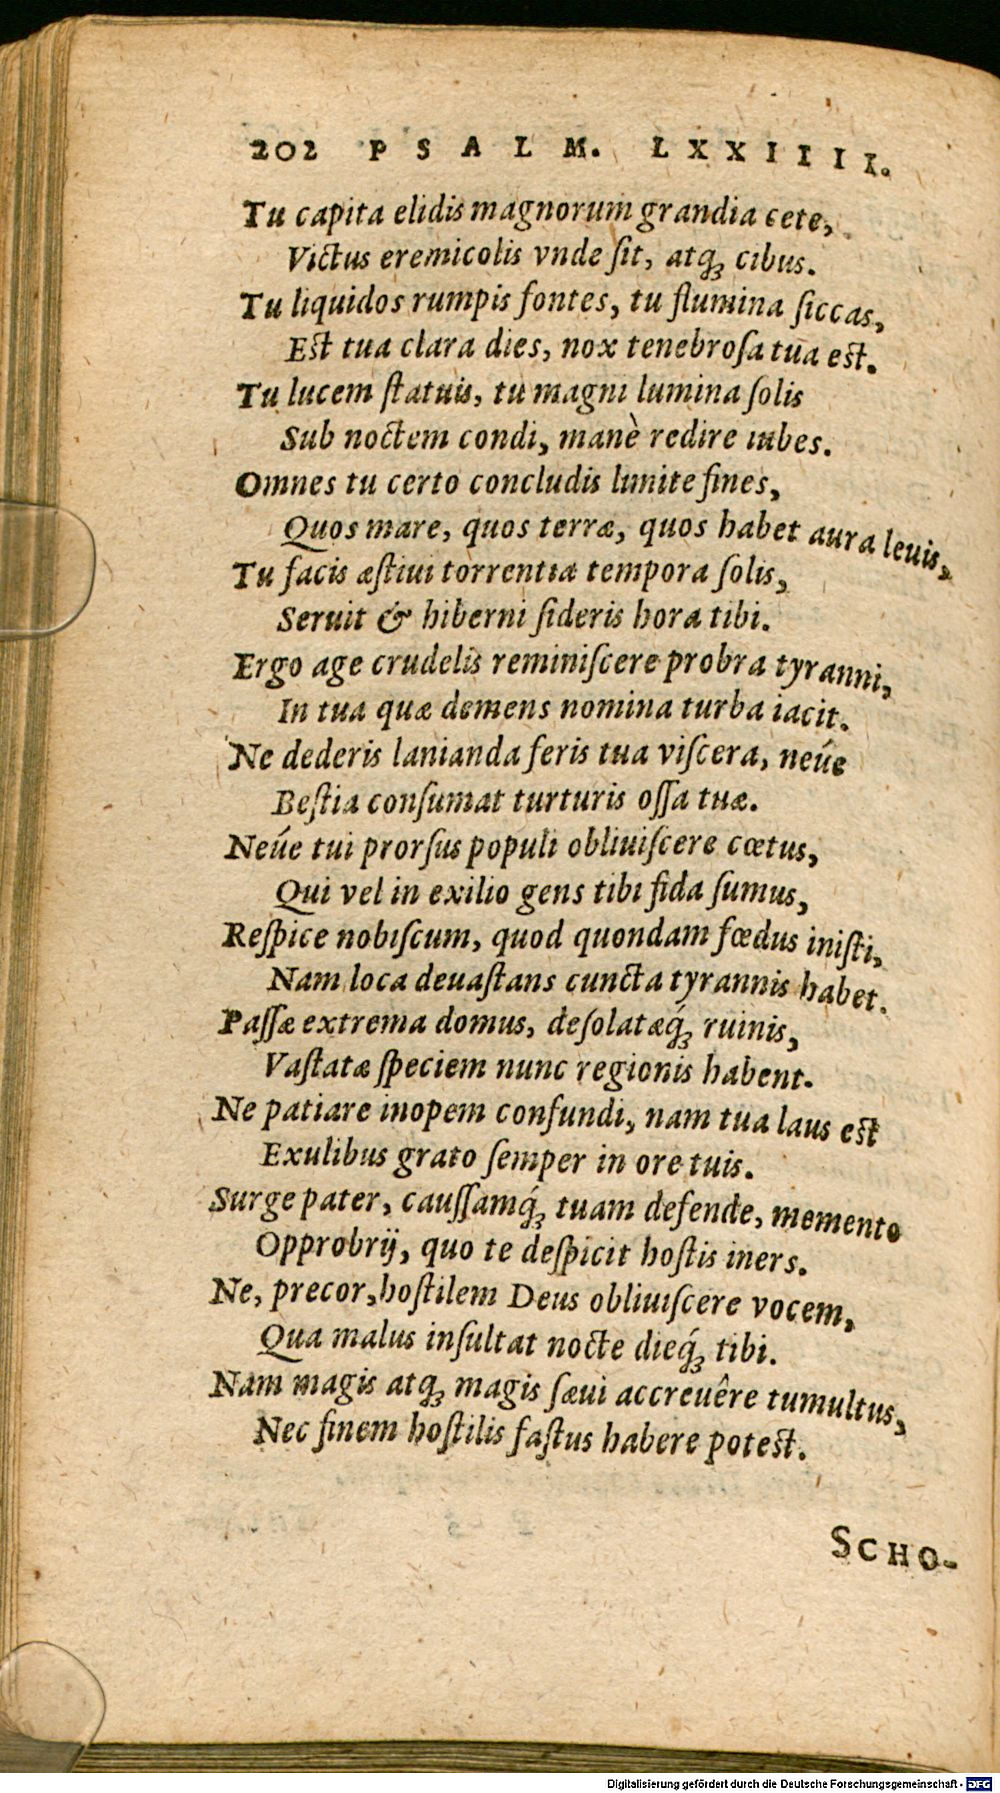 202 PSALM. LXXIIII.
Tu capita elidis magnorum grandia cete,
Victus eremicolis vnde ſit, atqꝫ cibus.
Tu liquidos rumpis fontes, tu flumina ſiccas,
Est tua clara dies, nox tenebroſa tua est.
Tu lucem ſtatuis, tu magni lumina ſolis
Sub noctem condi, manè redire iubes.
Omnes tu certo concludis limite fines,
Quos mare, quos terræ, quos habet aura leuis,
Tu facis æſtiui torrentia tempora ſolis,
Seruit & hiberni ſideris hora tibi.
Ergo age crudelis reminiſcere probra tyranni,
In tua quæ demens nomina turba iacit.
Ne dederis lanianda feris tua viſcera, neúe
Beſtia conſumat turturis oſſa tuæ.
Neúe tui prorſus populi obliuiſcere cœtus,
Qui vel in exilio gens tibi fida ſumus,
Reſpice nobiſcum, quod quondam fœdus iniſti,
Nam loca deuaſtans cuncta tyrannis habet.
Paſſæ extrema domus, deſolatæq́ꝫ ruinis,
Vaſtatæ ſpeciem nunc regionis habent.
Ne patiare inopem confundi, nam tua laus est
Exulibus grato ſemper in ore tuis.
Surge pater, cauſſamq́ꝫ tuam defende, memento
Opprobrij, quo te deſpicit hoſtis iners.
Ne, precor, hoſtilem Deus obliuiſcere vocem,
Qua malus inſultat nocte dieq́ꝫ tibi.
Nam magis atqꝫ magis ſæui accreuêre tumultus,
Nec finem hoſtilis faſtus habere potest.
SCHO-
Digitalisierung gefördert durch die Deutsche Forschungsgemeinschaft - DFG